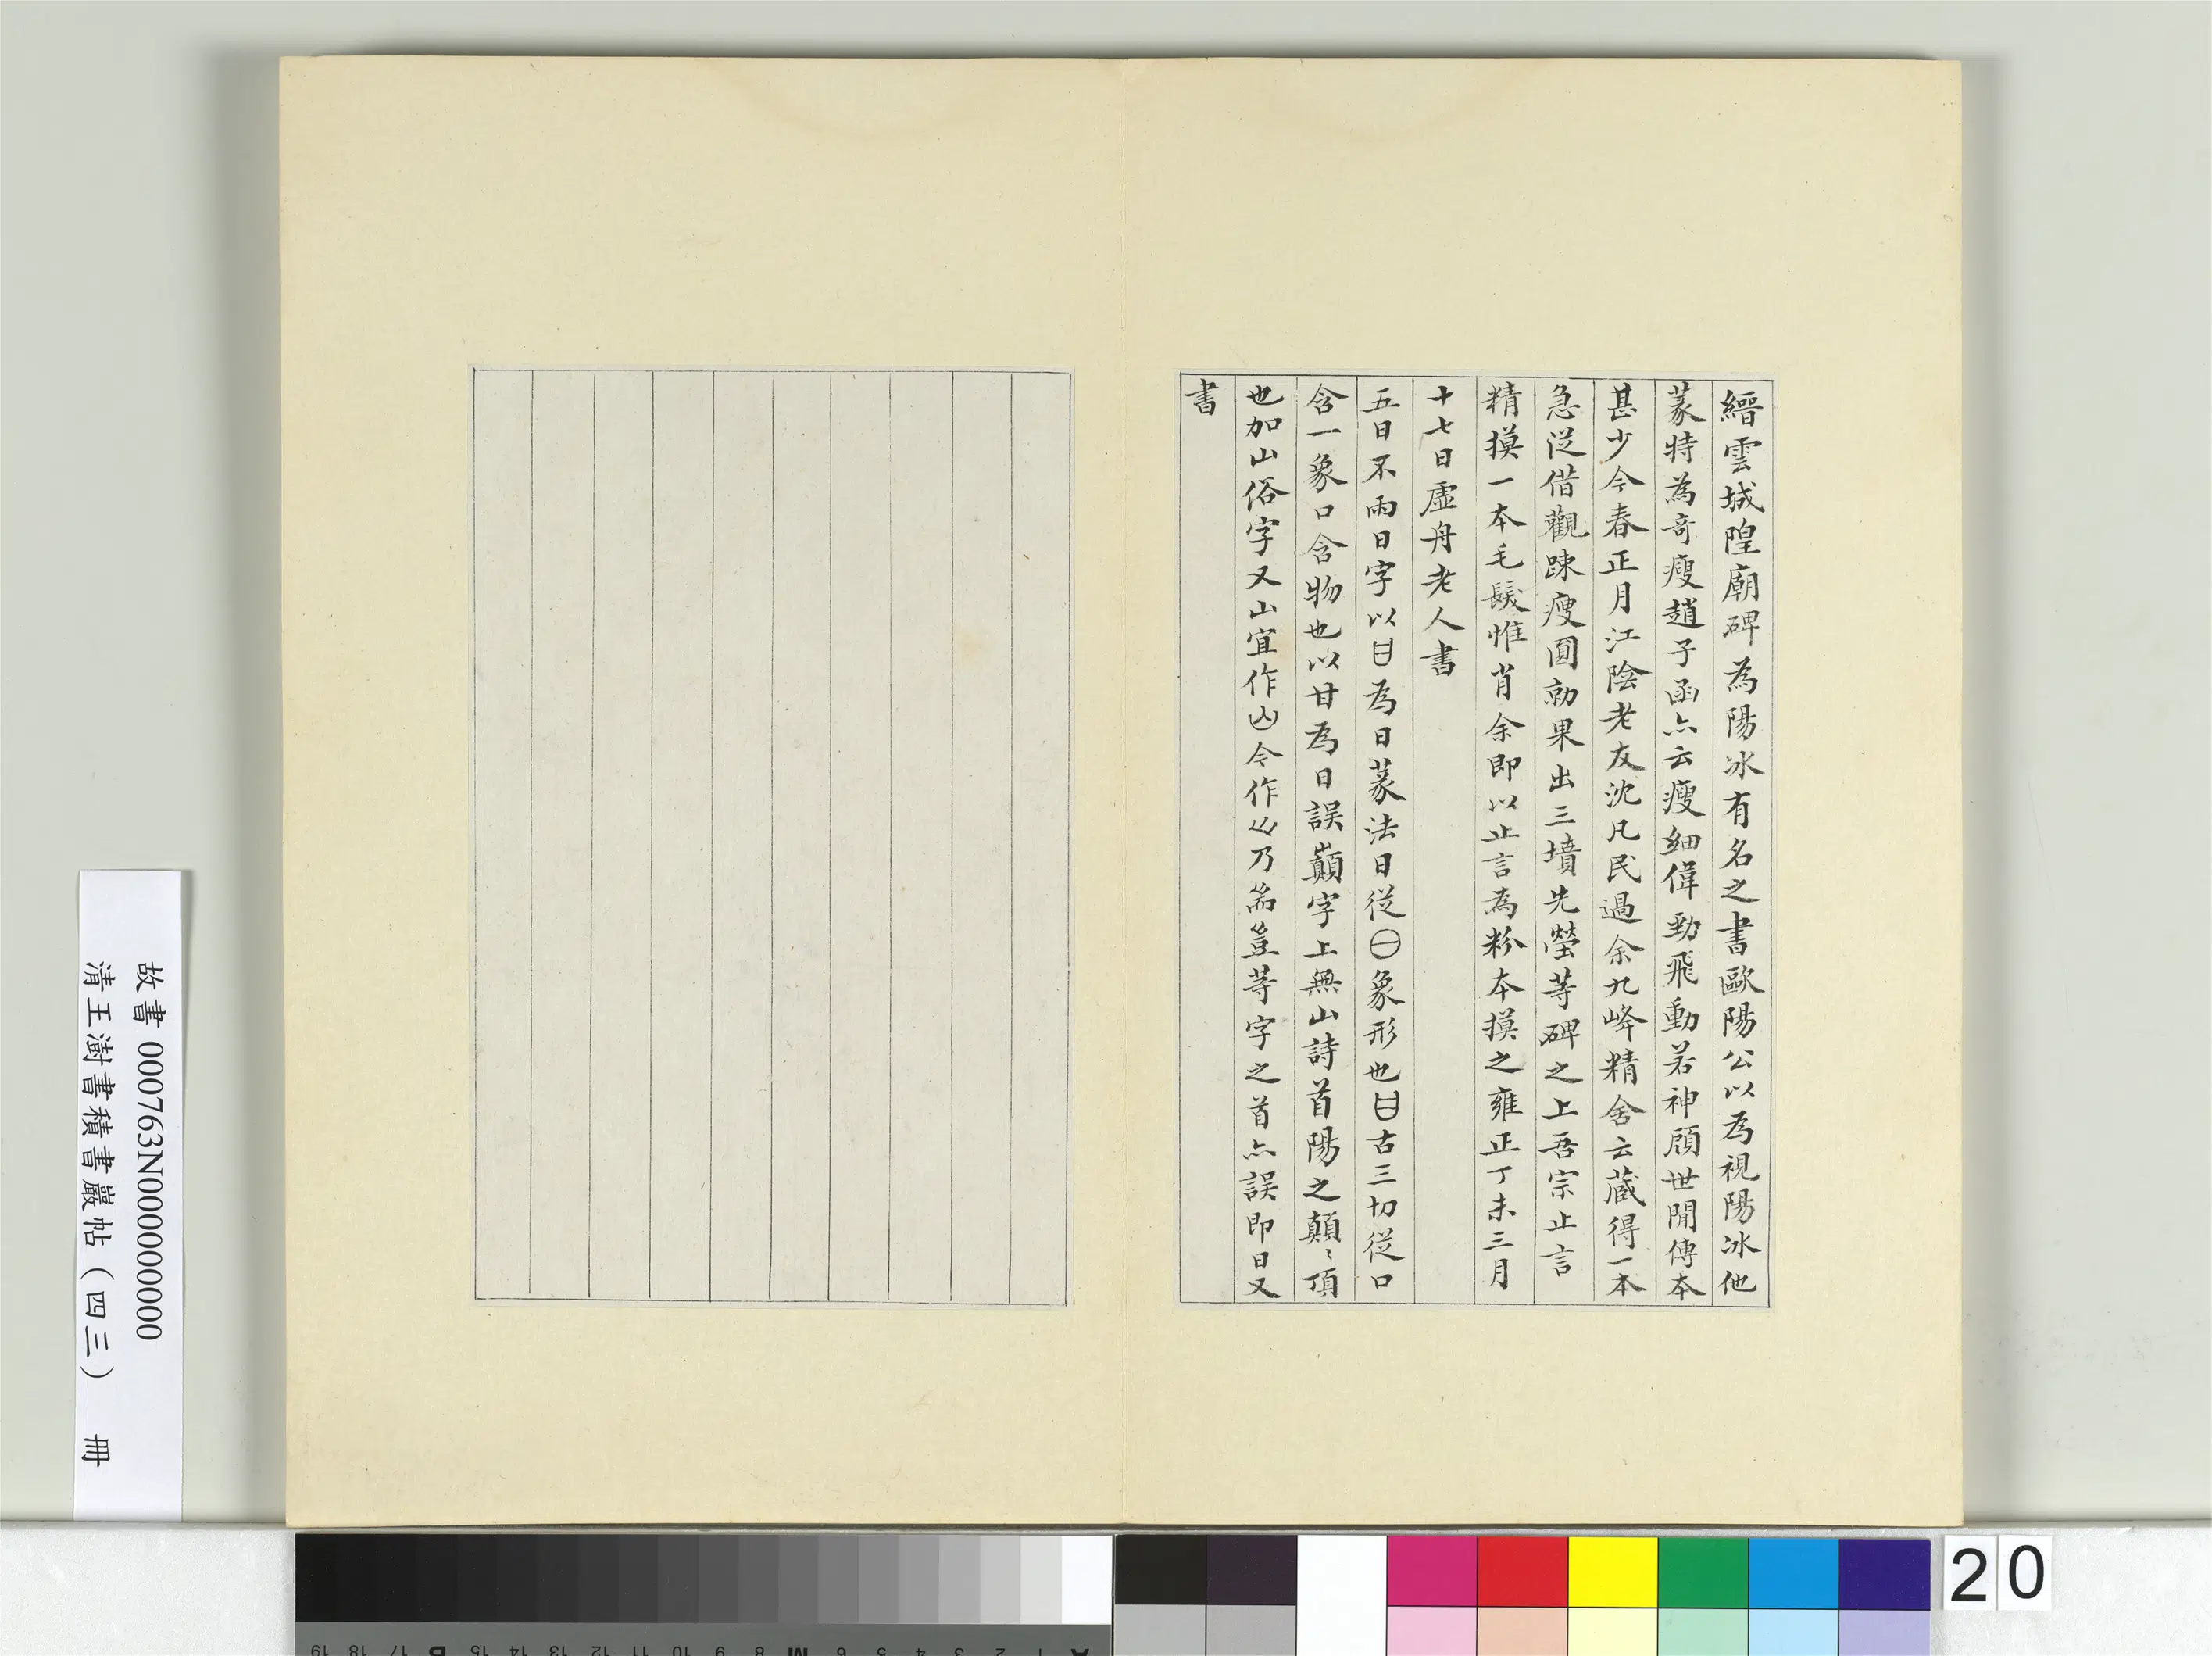 縉雲城隍廟碑為陽冰有名之書歐陽公以為視陽冰他
篆特為奇瘦趙子函亦云瘦細偉勁飛動若神顧世閒傳本
甚少今春正月江陰老友沈凡民過余九峰精舍云藏得一本
急從借觀踈瘦圓勁果出三墳先塋等碑之上吾宗止言
精摸一本毛髮惟肖余即以止言為粉本摸之雍正丁未三月
十七日虛舟老人書
五日不雨日字以日為日篆法日從⊖象形也甘古三切從口
含一象口含物也以甘為日誤巔字上無山詩首陽之顛〻頂
也加山俗字又山宜作凵今作乃耑豈等字之首亦誤即日又
書
故書 000763N000000000
清王澍書積書巖帖（四三） 冊
20
19 18 17 B 16 15 14 13 12 11 10 9 8 M 7 6 5 4 3 2 1 A